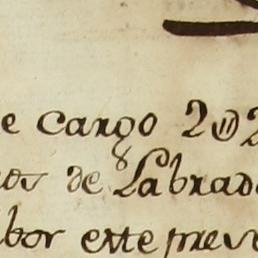 e cargo 2
os de Labrad
bor este prese